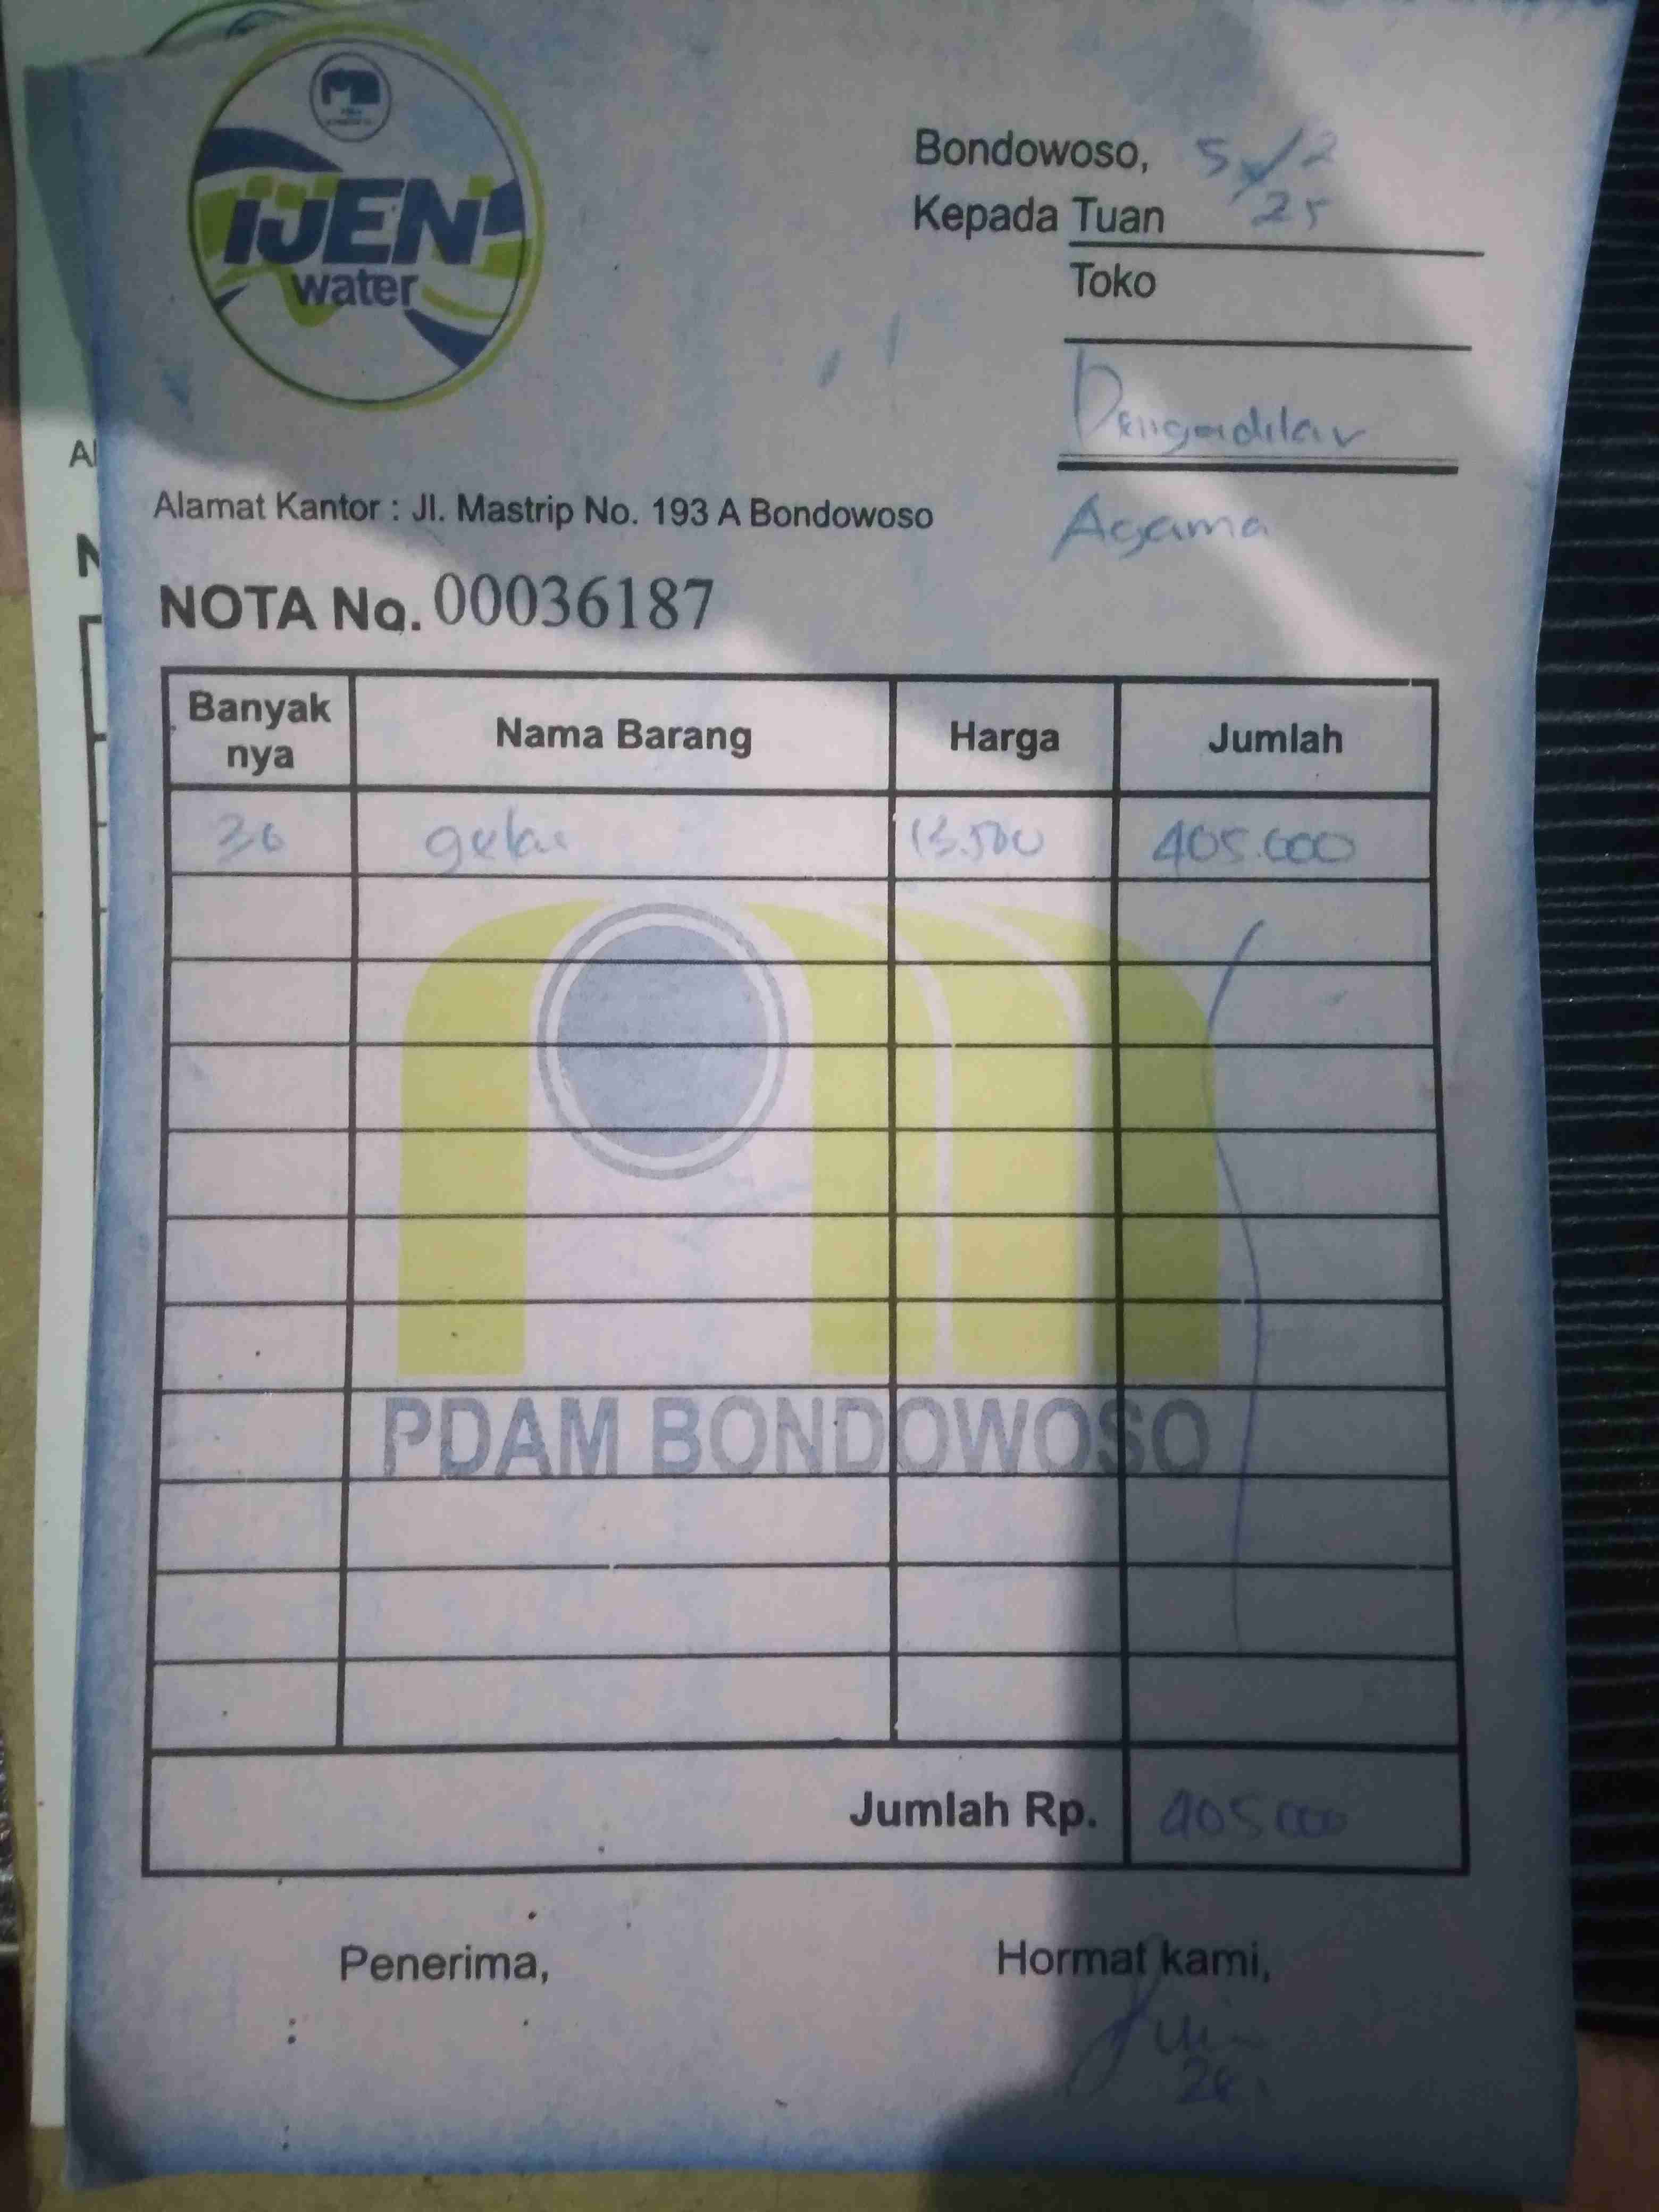 IJEN
water
Bondowoso, 5/2
25
Kepada Tuan
Toko
Pengadilan
Agama
Alamat Kantor : Jl. Mastrip No. 193 A Bondowoso
NOTA No. 00036187
Banyak nya Nama Barang Harga Jumlah
30 13.500 405.000
PDAM BONDOWOSO
Jumlah Rp. 405 000
Penerima, Hormat kami,